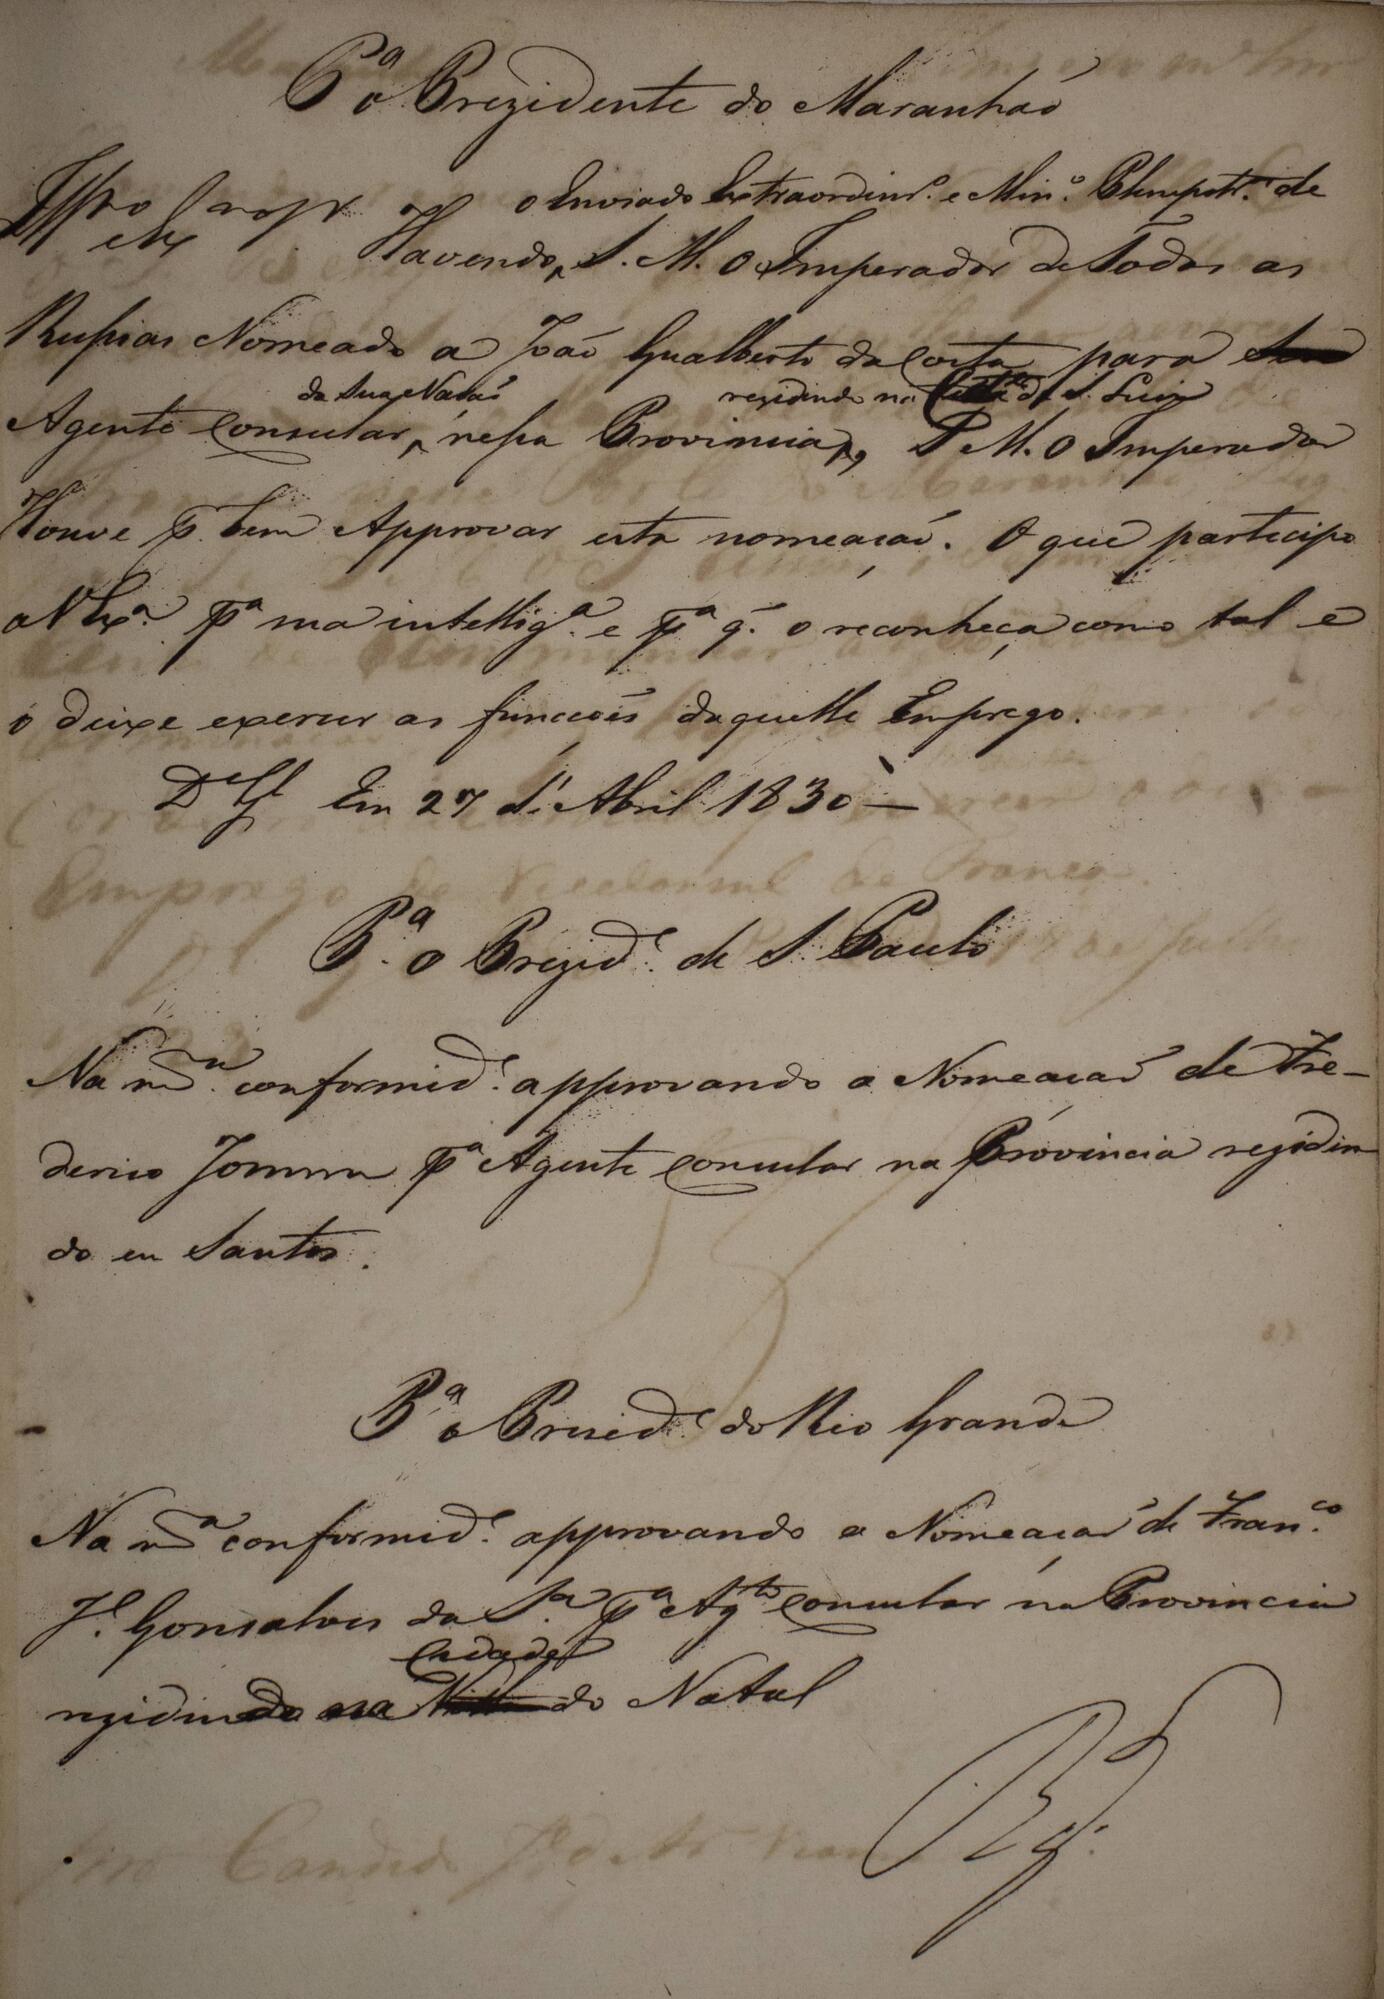 Pª o Prezidente do Maranhão
Illmo e Exmo Snr
o Enviado Extraordinrº. e Minº. Plenipotrº. de
Havendo S. M. O Imperador de Todas as
Russias Nomeado a João Gualberto da Costa para
da Sua Nação residindo na Cidᵉ de S. Luiz
Agente Consular, nessa Provincia, S. M. O Imperador
Houve p. bem Approvar esta nomeação. O que participo
a V Exª. pª sua intelligª. e pª q. o reconheça como tal e
o deixe exercer as funcções daquelle Emprego.
Dˢ Gᵈ Em 27 d'Abril 1830 —
Pª. o Prezidᵉ. de S. Paulo
Na mª. conformidᵉ. approvando a Nomeação de Fre-
derico Fomm pª Agente Consular na Provincia rezidin
do em Santos.
Pª o Presidᵉ. do Rio Grande
Na mª conformidᵉ. approvando a Nomeação de Franᶜᵒ.
Jᵉ. Gonsalves da Sª. pª Agᵗᵉ Consular na Provincia
Cidade
rezidindo na do Natal